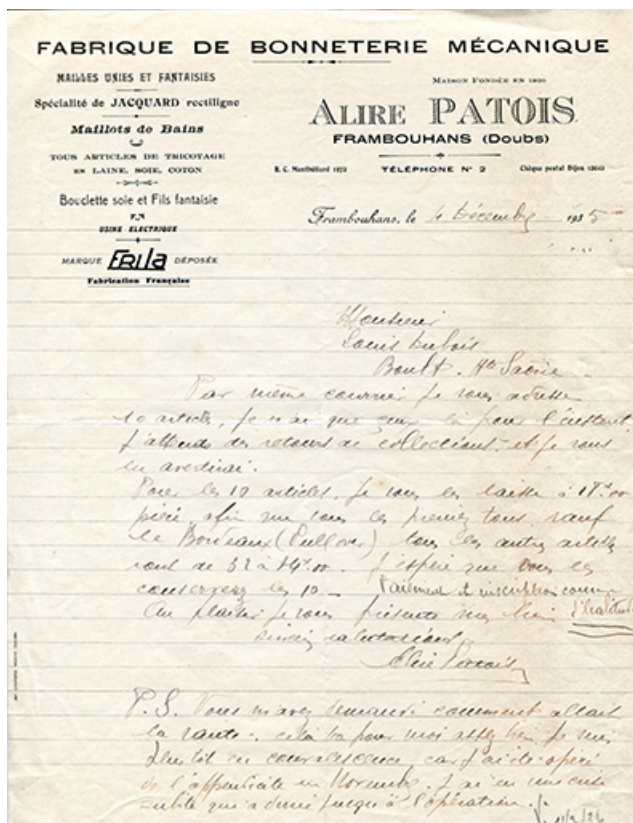 FABRIQUE DE BONNETERIE MÉCANIQUE
MAILLES UNIES ET FANTAISIES
Spécialité de JACQUARD rectiligne
Maillots de Bains
TOUS ARTICLES DE TRICOTAGE
EN LAINE, SOIE, COTON
Bouclette soie et Fils fantaisie
USINE ELECTRIQUE
MARQUE ERILA DÉPOSÉE
Fabrication Française
MAISON FONDÉE EN 1920
ALIRE PATOIS
FRAMBOUHANS (Doubs)
R. C. Montbéliard
TÉLÉPHONE N° 2
Chèque postal Dijon
Frambouhans, le 4 Décembre 1935
Monsieur
Louis Dubois
Boult. Hte Saône
Par même courrier je vous adresse
10 articles, je n'ai que ceux là pour l'instant
J'attends des retours de collections, et je vous
en avertirai.
Pour les 10 articles. Je vous les laisse à
pièce, afin que vous les preniez tous, sauf
le Bordeaux (Pullover) tous les autres articles
sont de J'espère que vous les
conserverez les 10 _ Paiement et inscription comme
d'habitude
Au plaisir je vous présente mes bien
sincères salutations
Alire Patois
P. S. Vous m'avez demandé comment allait
la santé, cela va pour moi assez bien, je suis
bientôt en convalescence, car j'ai été opéré
de l'appendicite en Novembre. J'ai eu une crise
subite qui a demi jusqu'à l'opération.